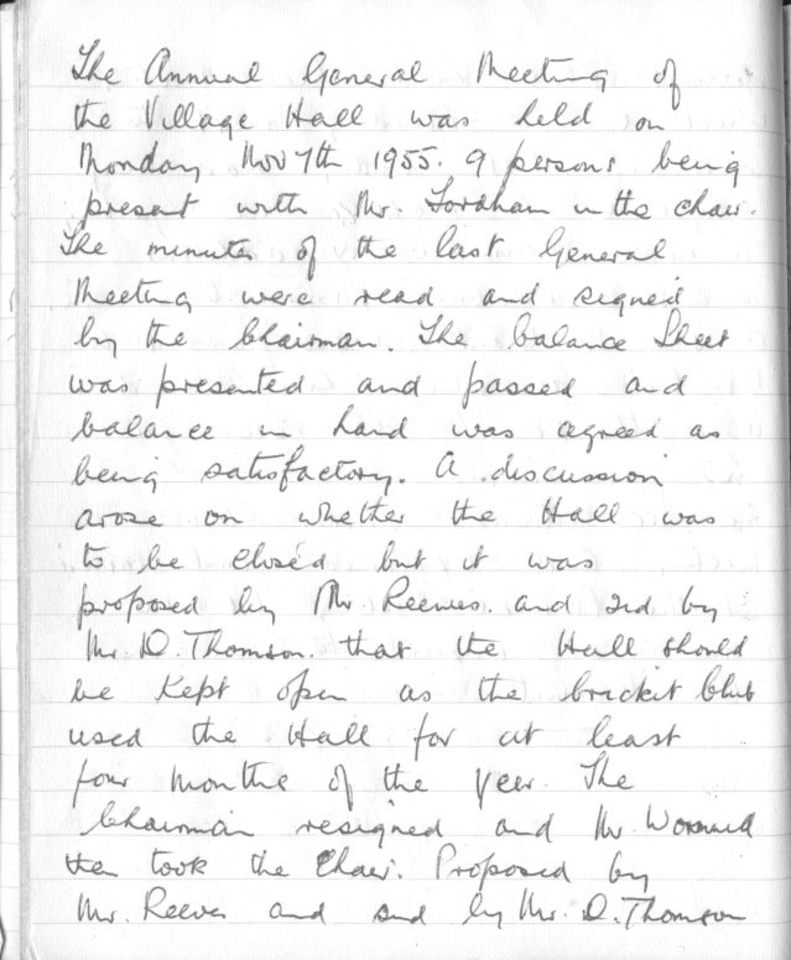 The Annual General Meeting of
the Village Hall was held on
Monday Nov 7th 1955. 9 persons being
present with Mr. Fordham in the chair.
The minutes of the last General
Meeting were read and signed
by the Chairman. The balance Sheet
was presented and passed and
balance in hand was agreed as
being satisfactory. A discussion
arose on whether the Hall was
to be closed but it was
proposed by Mr. Reeves. and 2nd by
Mr. D. Thomson. that the Hall should
be kept open as the Cricket Club
used the Hall for at least
four months of the year. The
Chairman resigned and Mr.
then took the Chair. Proposed by
Mr. Reeves and 2nd by Mr. D. Thomson